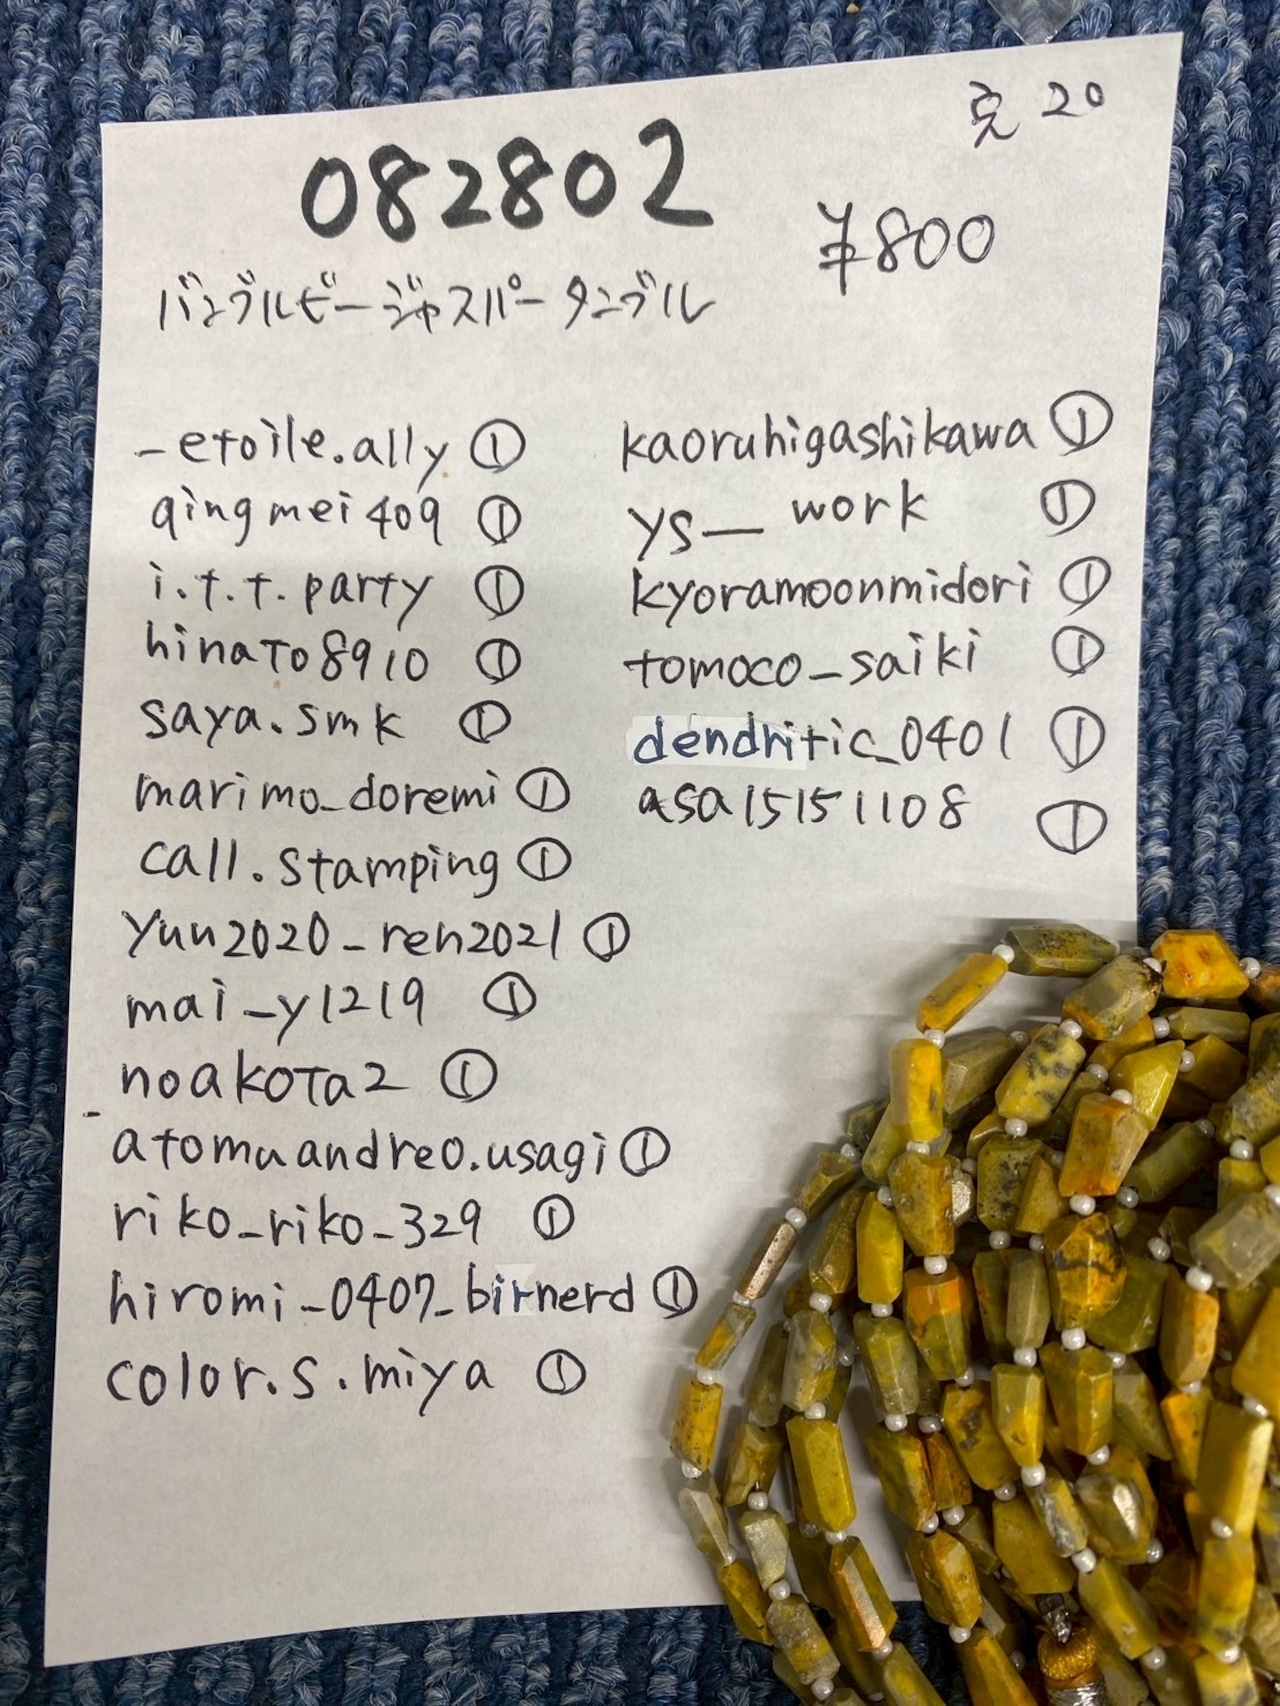 完 20
082802
¥800
バンブルビージャスパータンブル
_etoile.ally ①
qingmei409 ①
i.t.t.party ①
hinato8910 ①
saya.smk ①
marimo_doremi ①
call.stamping ①
yuu2020_ren2021 ①
mai_y1219 ①
noakota2 ①
atomuandreo.usagi ①
riko_riko_329 ①
hiromi_0407_birnerd ①
color.s.miya ①
kaoruhigashikawa ①
ys__work ①
kyoramoonmidori ①
tomoco_saiki ①
dendritic_0401 ①
asa15151108 ①